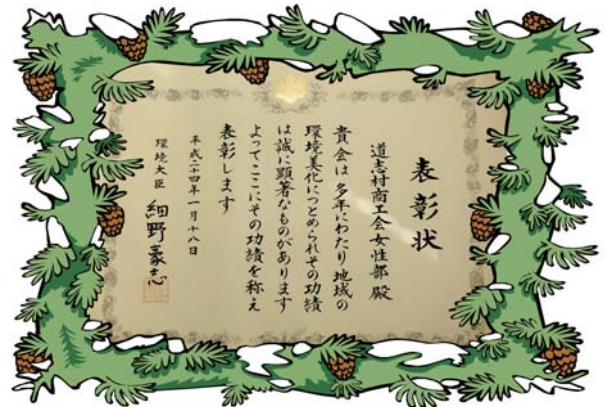 表彰状
道志村商工会女性部 殿
貴会は多年にわたり地域の
環境美化につとめられその功績
は誠に顕著なものがあります
よってここにその功績を称え
表彰します
平成二十四年一月十八日
環境大臣 細野豪志